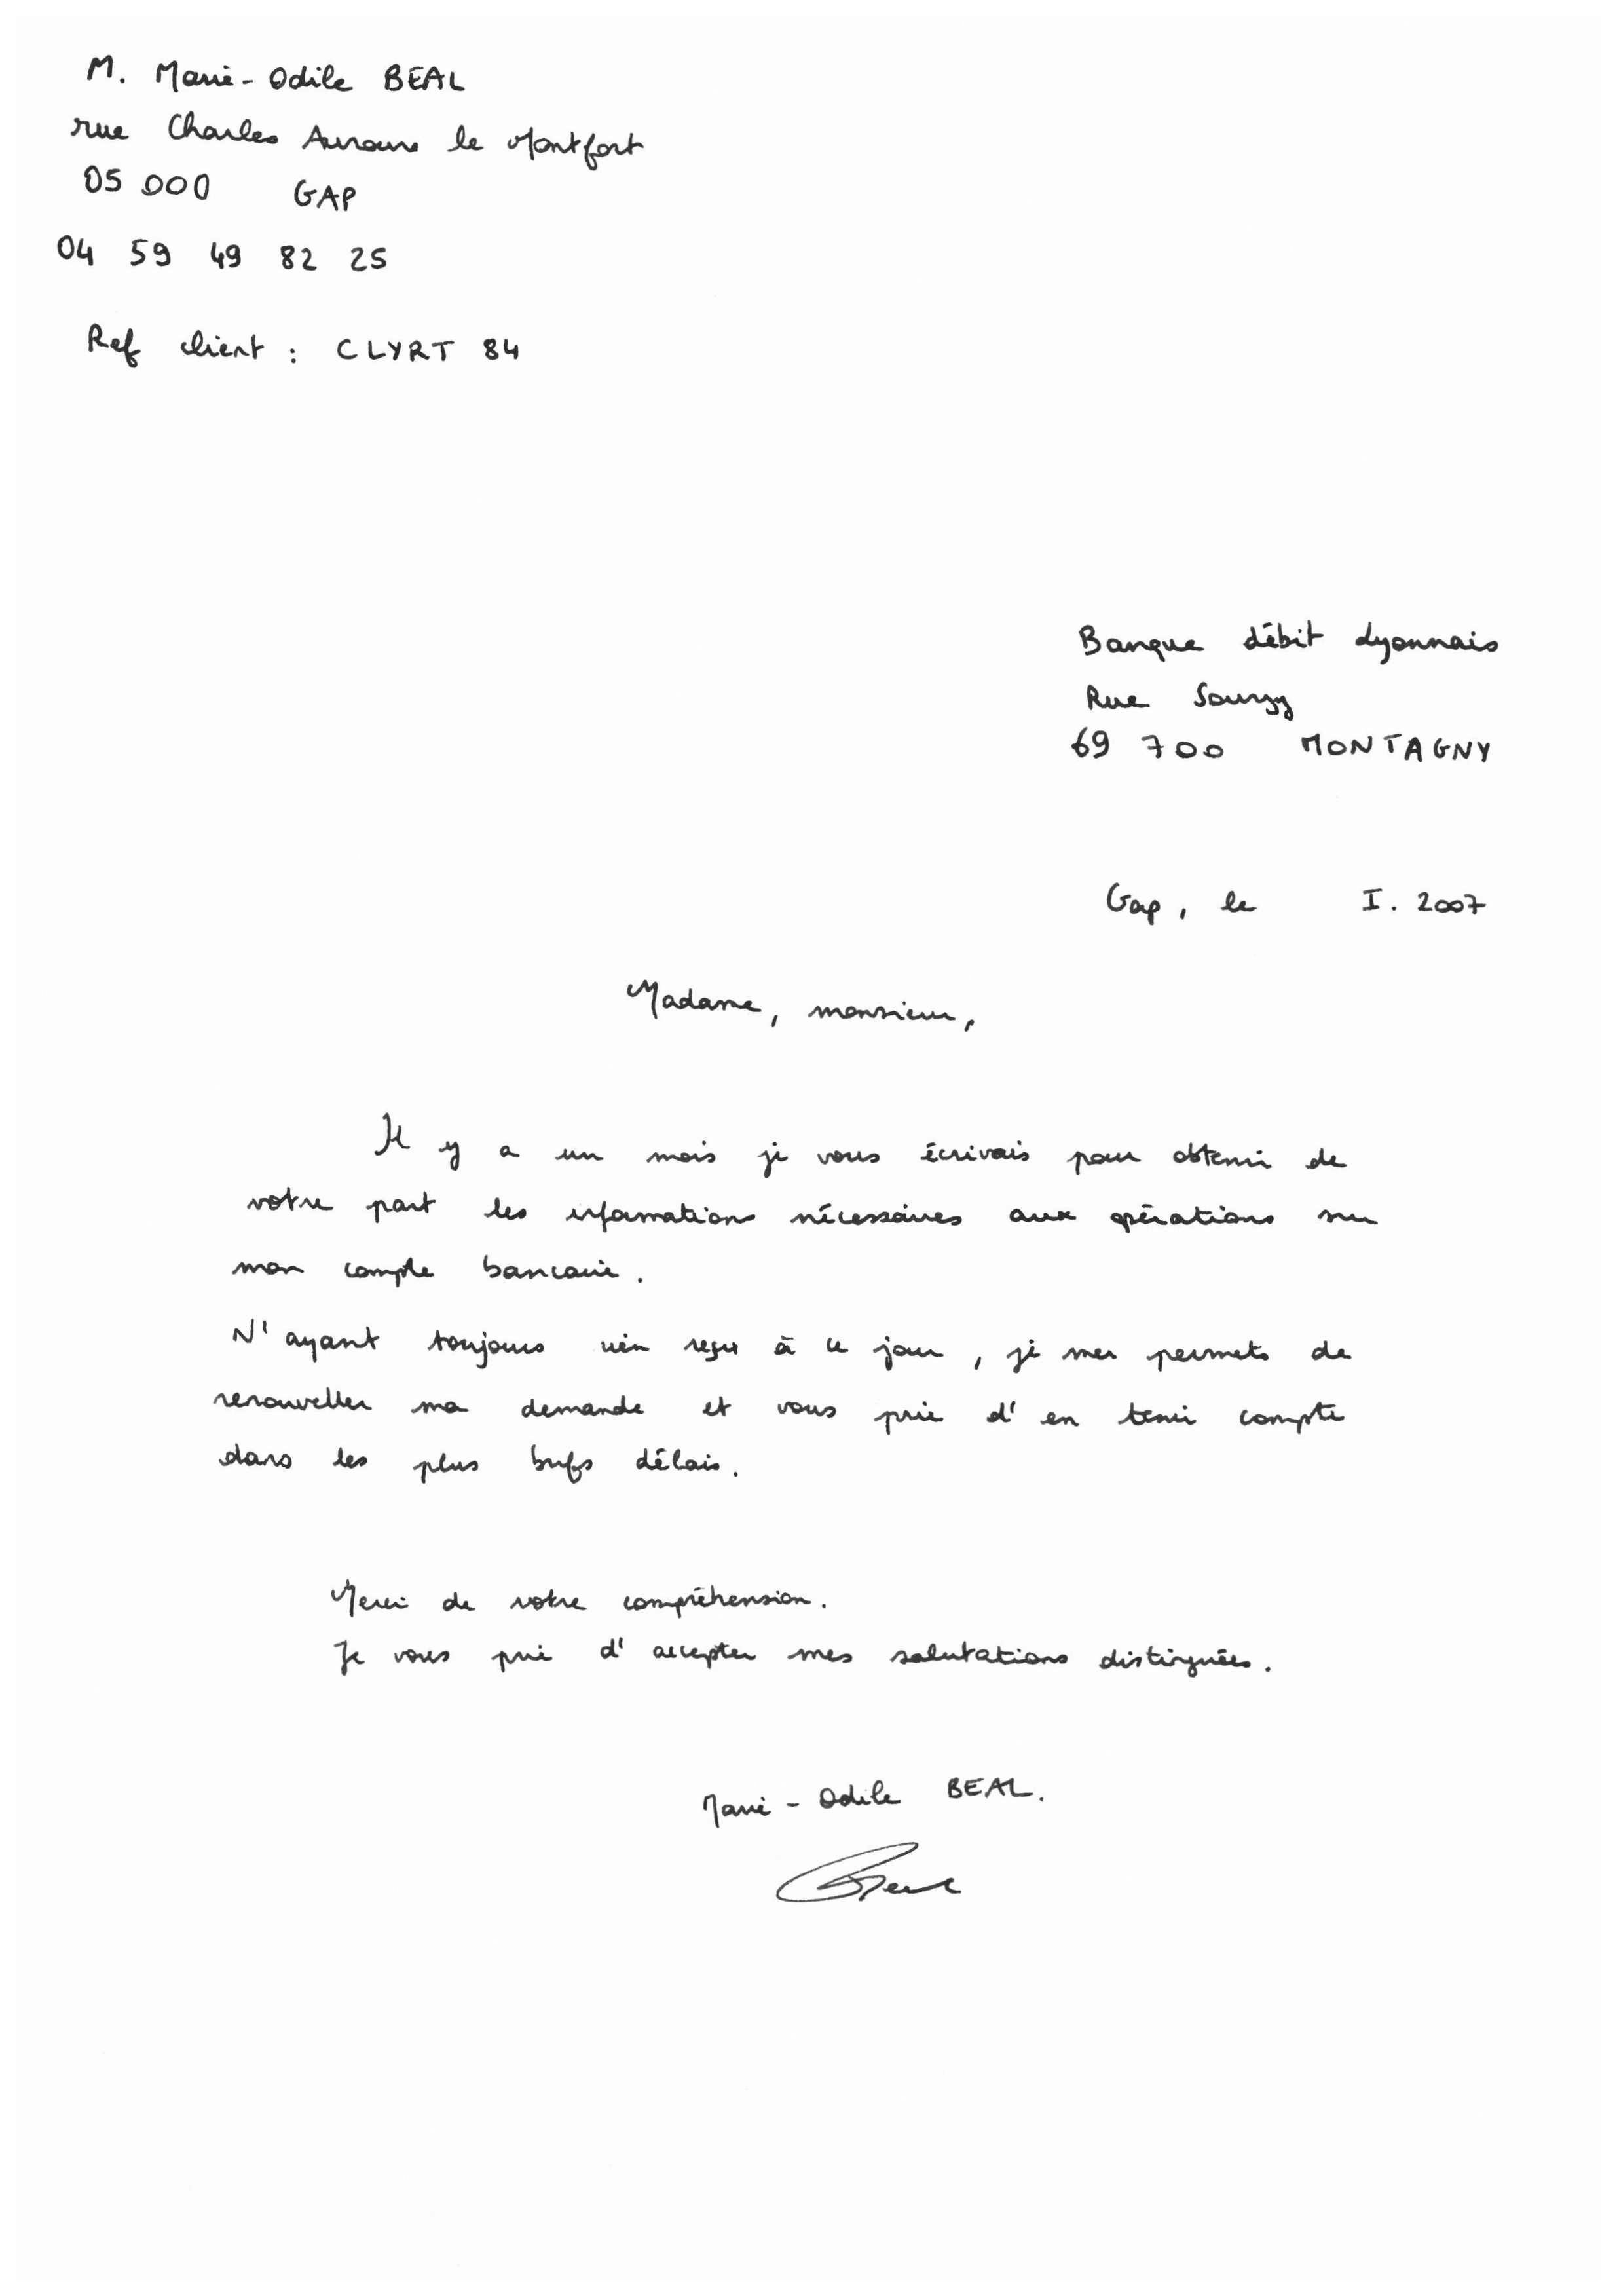 M. Marie-Odile BEAL
rue Charles Aurouze le Montfort
05 000 GAP
04 59 49 82 25
Ref client : CLYRT 84
Banque débit Lyonnais
Rue Sourzy
69 700 MONTAGNY
Gap, le I. 2007
Madame, monsieur,
Il y a un mois je vous écrivais pour obtenir de
votre part les informations nécessaires aux opérations sur
mon compte bancaire.
N'ayant toujours rien reçu à ce jour, je me permets de
renouveller ma demande et vous prie d'en tenir compte
dans les plus brefs délais.
Merci de votre compréhension.
Je vous prie d'accepter mes salutations distinguées.
Marie-Odile BEAL.
Beal